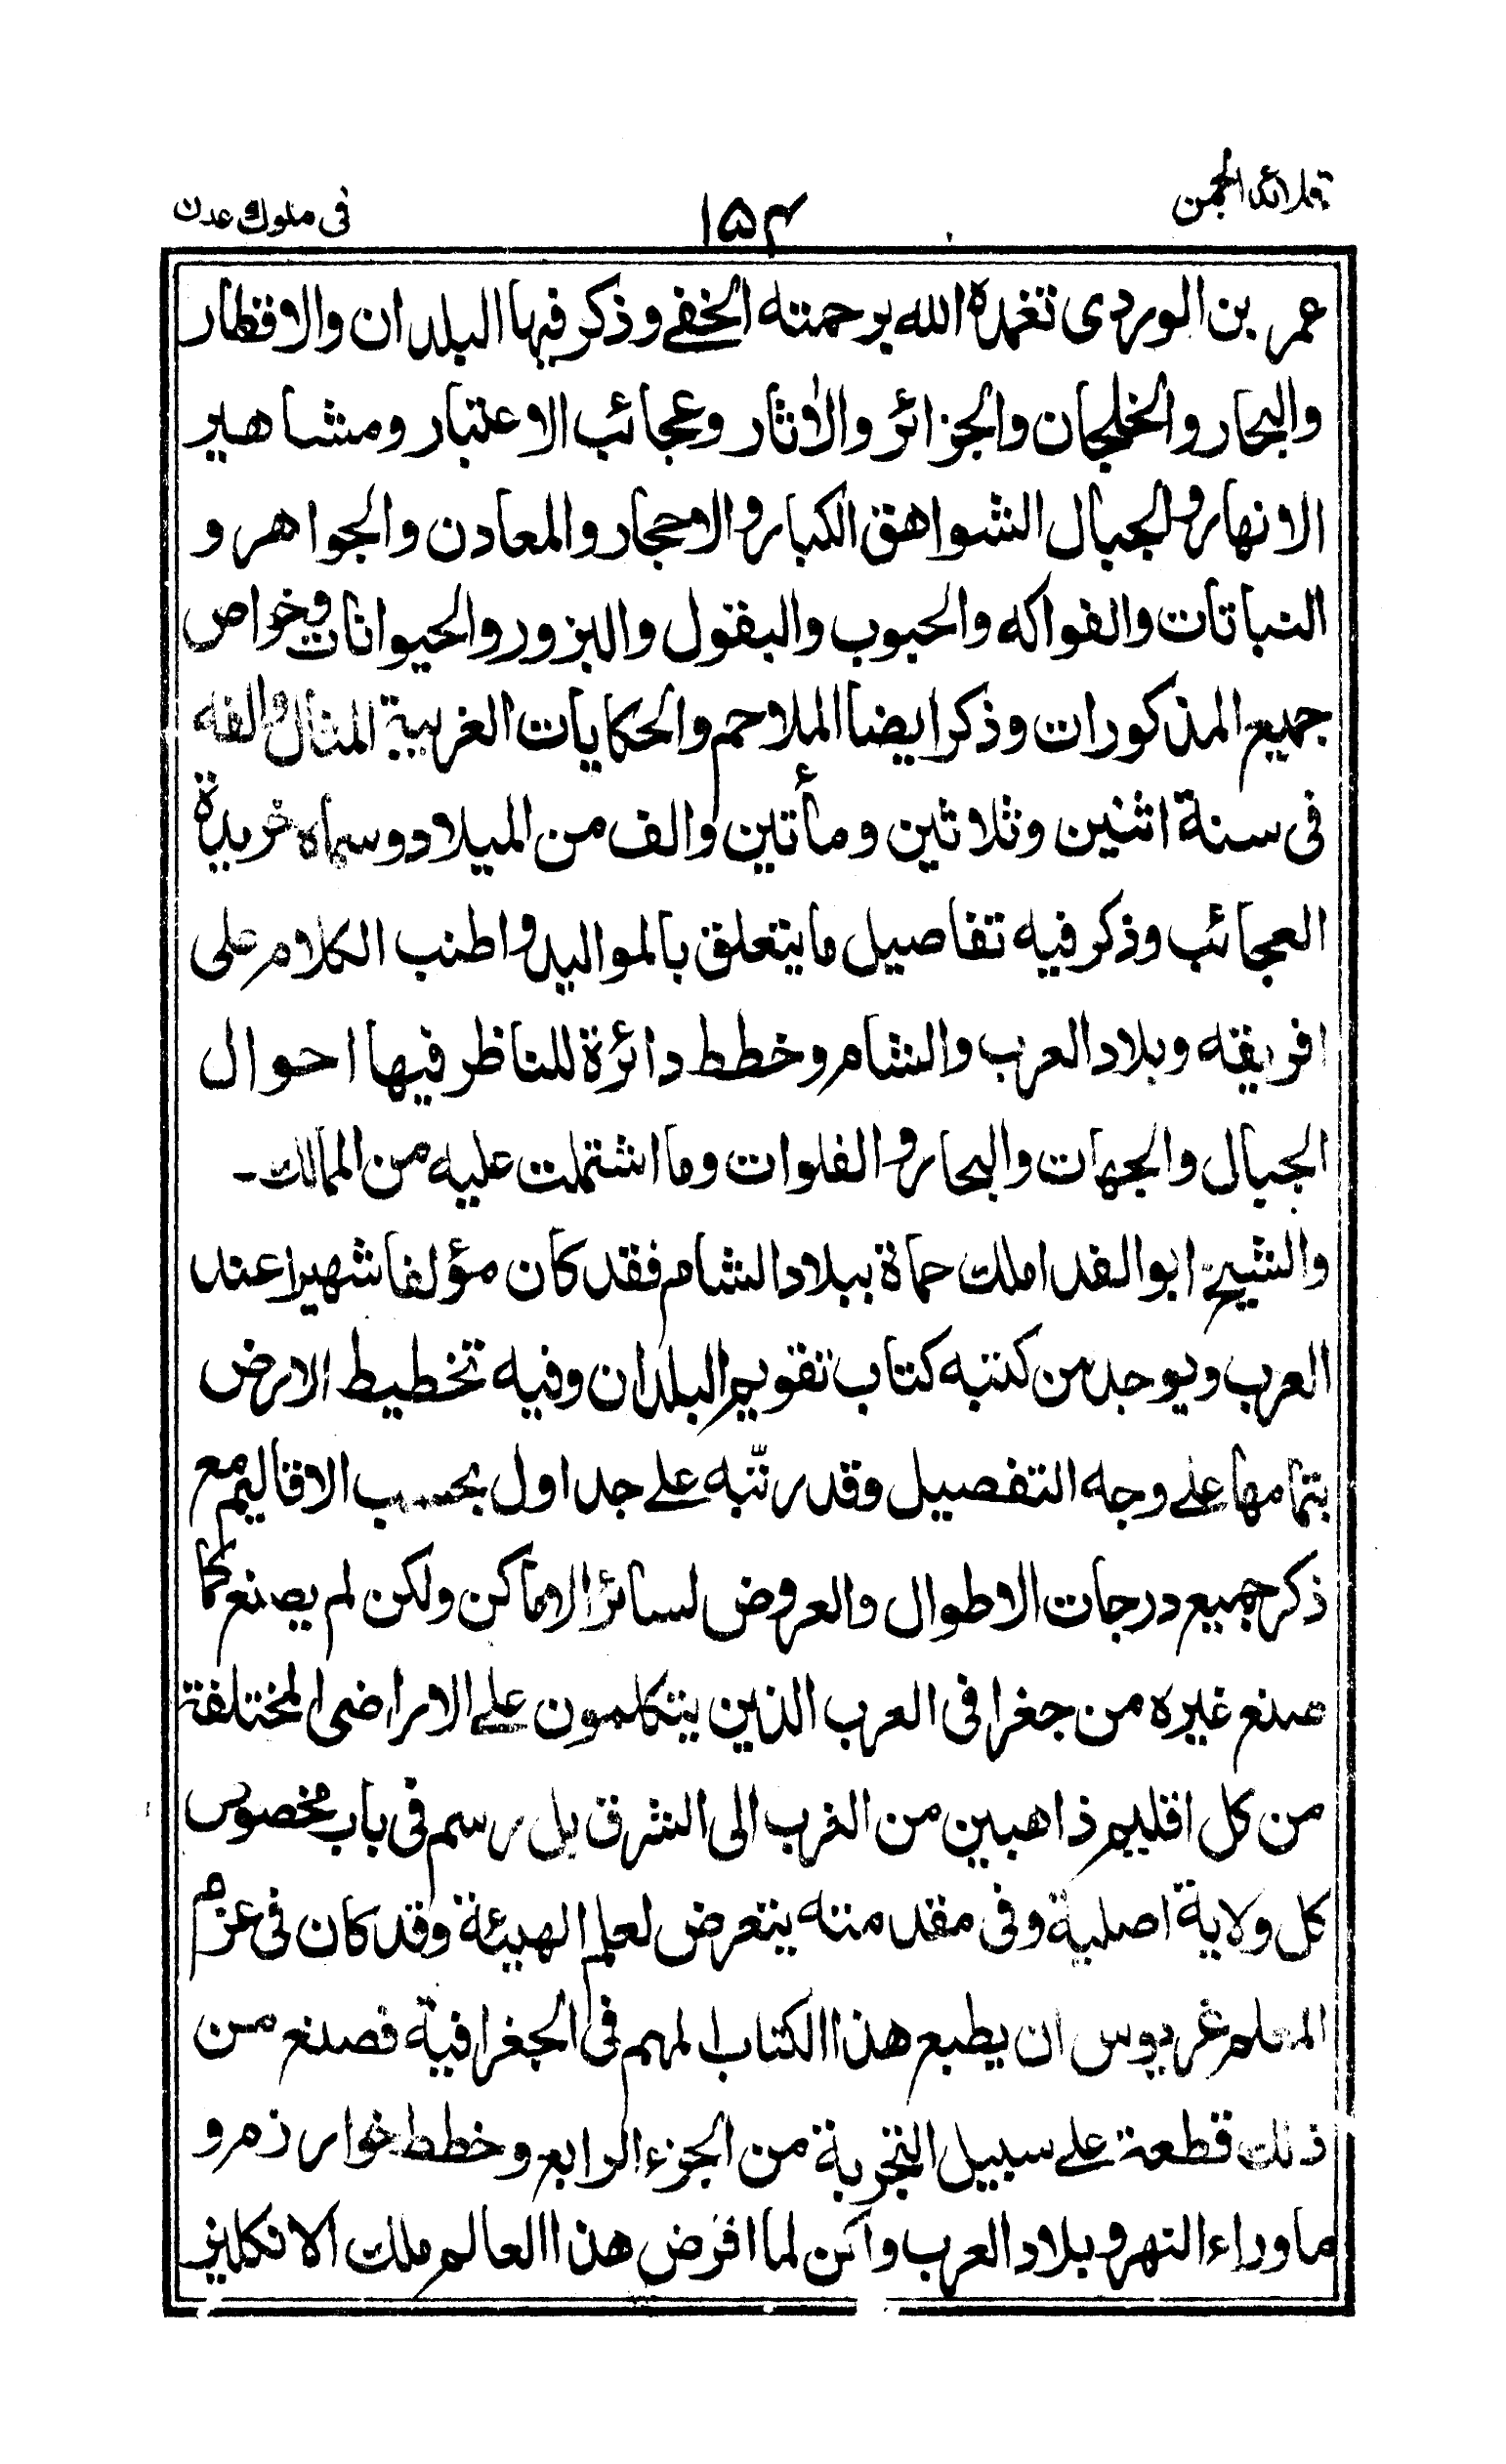 قلائد الجمن
۱۵۴
فى ملوك عدن
عمر بن الوردى تغمده الله برحمته الخفے وذكر فيها البلدان والاقطار
والبحار والخلجان والجزائر والاثار وعجائب الاعتبار ومشاهير
الانهار والجبال الشواهق الكبار والاحجار والمعادن والجواهر و
النباتات والفواكه والحبوب والبقول والبزور والحيوانات وخواص
جميع المذكورات وذكر ايضا الملاحم والحكايات الغريبة المنال والفه
فى سنة اثنين وثلاثين ومأتين والف من الميلاد وسماه خريدة
العجائب وذكر فيه تفاصيل ما يتعلق بالمواليد واطنب الكلام على
افريقه وبلاد العرب والشام وخطط دائرة للناظر فيها احوال
الجبال والجهات والبحار والفلوات وما اشتملت عليه من الممالك -
والشيخ ابو الفدا ملك حماة ببلاد الشام فقد كان مؤلفا شهيرا عند
العرب ويوجد من كتبه كتاب تقويم البلدان وفيه تخطيط الارض
بتمامها علے وجه التفصيل وقد رتّبه علے جداول بحسب الاقاليم مع
ذكر جميع درجات الاطوال والعروض لسائر الاماكن ولكن لم يصنع كما
صنع غيره من جغرافى العرب الذين يتكلمون علے الاراضى المختلفة
من كل اقليم ذاهبين من الغرب الى الشرق بل رسم فى باب مخصوص
كل ولاية اصلية وفى مقدمته يتعرض لعلم الهيئة وقد كان فى عزم
المعلم غريوس ان يطبع هذا الكتاب المهم فى الجغرافية فصنع من
ذلك قطعة علے سبيل التجربة من الجزء الرابع وخطط خوارزم و
ماوراء النهر وبلاد العرب ولكن لما افرض هذا العالم ملك الانكليز